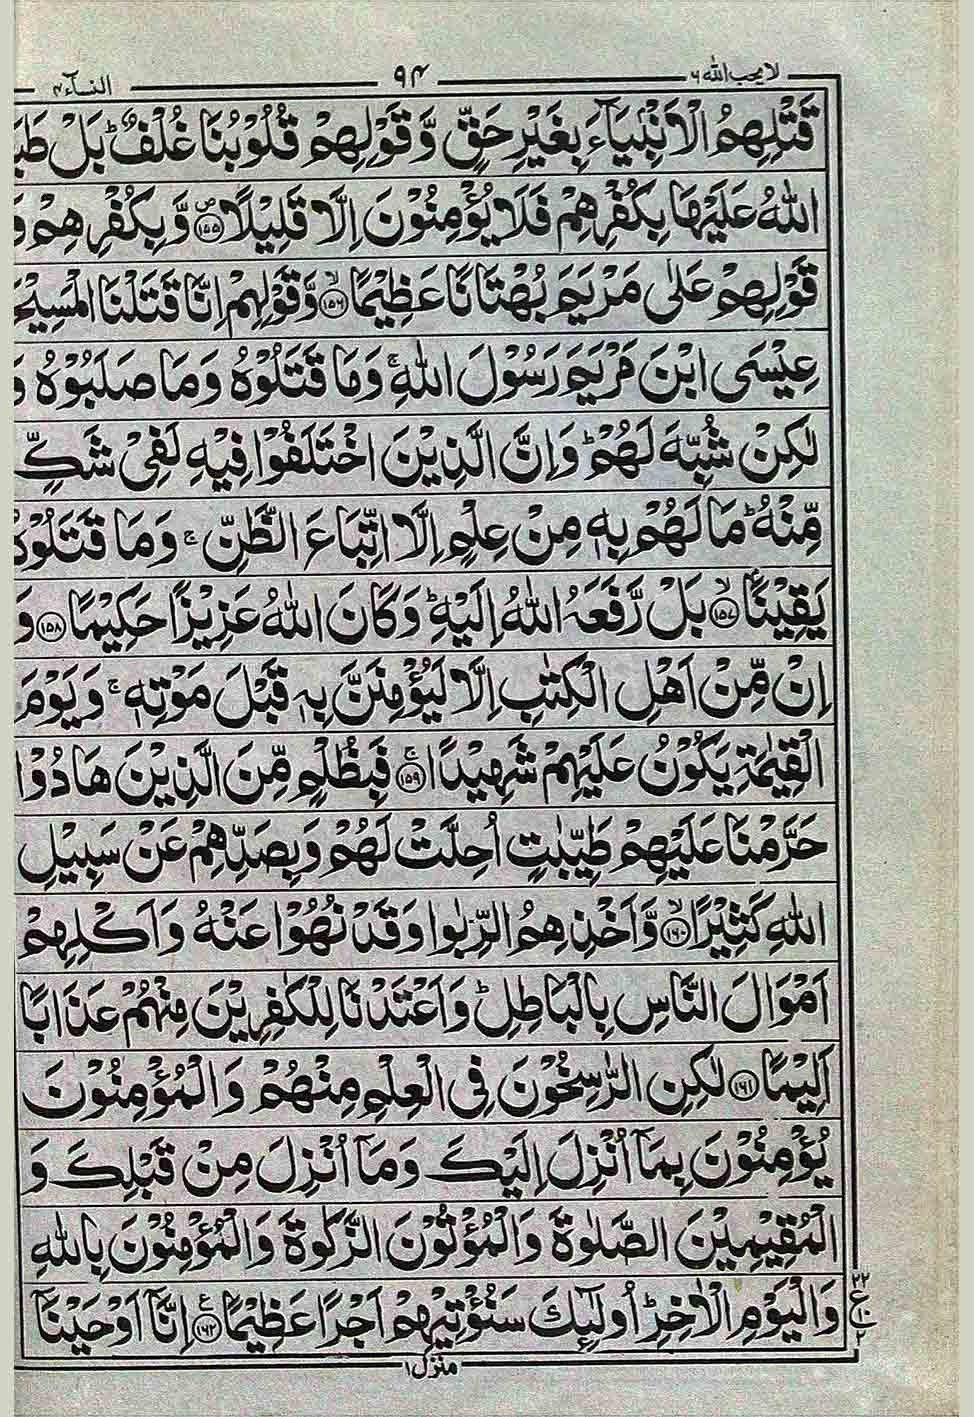 لا یحب الله ۶ ۹۴ النسآء ۴
قَتْلِهِمُ الْاَنْۢبِيَآءَ بِغَيْرِ حَقٍّ وَّ قَوْلِهِمْ قُلُوْبُنَا غُلْفٌ ؕ بَلْ طَبَ
اللّٰهُ عَلَيْهَا بِكُفْرِهِمْ فَلَا يُؤْمِنُوْنَ اِلَّا قَلِيْلًا ۪﴿۱۵۵﴾ وَّ بِكُفْرِهِمْ وَ
قَوْلِهِمْ عَلٰى مَرْيَمَ بُهْتَانًا عَظِيْمًا ۙ﴿۱۵۶﴾ وَّ قَوْلِهِمْ اِنَّا قَتَلْنَا الْمَسِيْحَ
عِيْسَى ابْنَ مَرْيَمَ رَسُوْلَ اللّٰهِ ۚ وَمَا قَتَلُوْهُ وَمَا صَلَبُوْهُ وَ
لٰكِنْ شُبِّهَ لَهُمْ ؕ وَاِنَّ الَّذِيْنَ اخْتَلَفُوْا فِيْهِ لَفِيْ شَكٍّ
مِّنْهُ ؕ مَا لَهُمْ بِهٖ مِنْ عِلْمٍ اِلَّا اتِّبَاعَ الظَّنِّ ۚ وَمَا قَتَلُوْهُ
يَقِيْنًۢا ۙ﴿۱۵۷﴾ بَلْ رَّفَعَهُ اللّٰهُ اِلَيْهِ ؕ وَكَانَ اللّٰهُ عَزِيْزًا حَكِيْمًا ﴿۱۵۸﴾ وَ
اِنْ مِّنْ اَهْلِ الْكِتٰبِ اِلَّا لَيُؤْمِنَنَّ بِهٖ قَبْلَ مَوْتِهٖ ۚ وَيَوْمَ
الْقِيٰمَةِ يَكُوْنُ عَلَيْهِمْ شَهِيْدًا ۚ﴿۱۵۹﴾ فَبِظُلْمٍ مِّنَ الَّذِيْنَ هَادُوْا
حَرَّمْنَا عَلَيْهِمْ طَيِّبٰتٍ اُحِلَّتْ لَهُمْ وَبِصَدِّهِمْ عَنْ سَبِيْلِ
اللّٰهِ كَثِيْرًا ۙ﴿۱۶۰﴾ وَّ اَخْذِهِمُ الرِّبٰوا وَقَدْ نُهُوْا عَنْهُ وَاَكْلِهِمْ
اَمْوَالَ النَّاسِ بِالْبَاطِلِ ؕ وَاَعْتَدْنَا لِلْكٰفِرِيْنَ مِنْهُمْ عَذَابًا
اَلِيْمًا ﴿۱۶۱﴾ لٰكِنِ الرّٰسِخُوْنَ فِي الْعِلْمِ مِنْهُمْ وَالْمُؤْمِنُوْنَ
يُؤْمِنُوْنَ بِمَاۤ اُنْزِلَ اِلَيْكَ وَمَاۤ اُنْزِلَ مِنْ قَبْلِكَ وَ
الْمُقِيْمِيْنَ الصَّلٰوةَ وَالْمُؤْتُوْنَ الزَّكٰوةَ وَالْمُؤْمِنُوْنَ بِاللّٰهِ
وَالْيَوْمِ الْاٰخِرِ ؕ اُولٰٓئِكَ سَنُؤْتِيْهِمْ اَجْرًا عَظِيْمًا ﴿۱۶۲﴾ اِنَّاۤ اَوْحَيْنَاۤ
۲۲
ع ۱۰
۲
منزل ۱